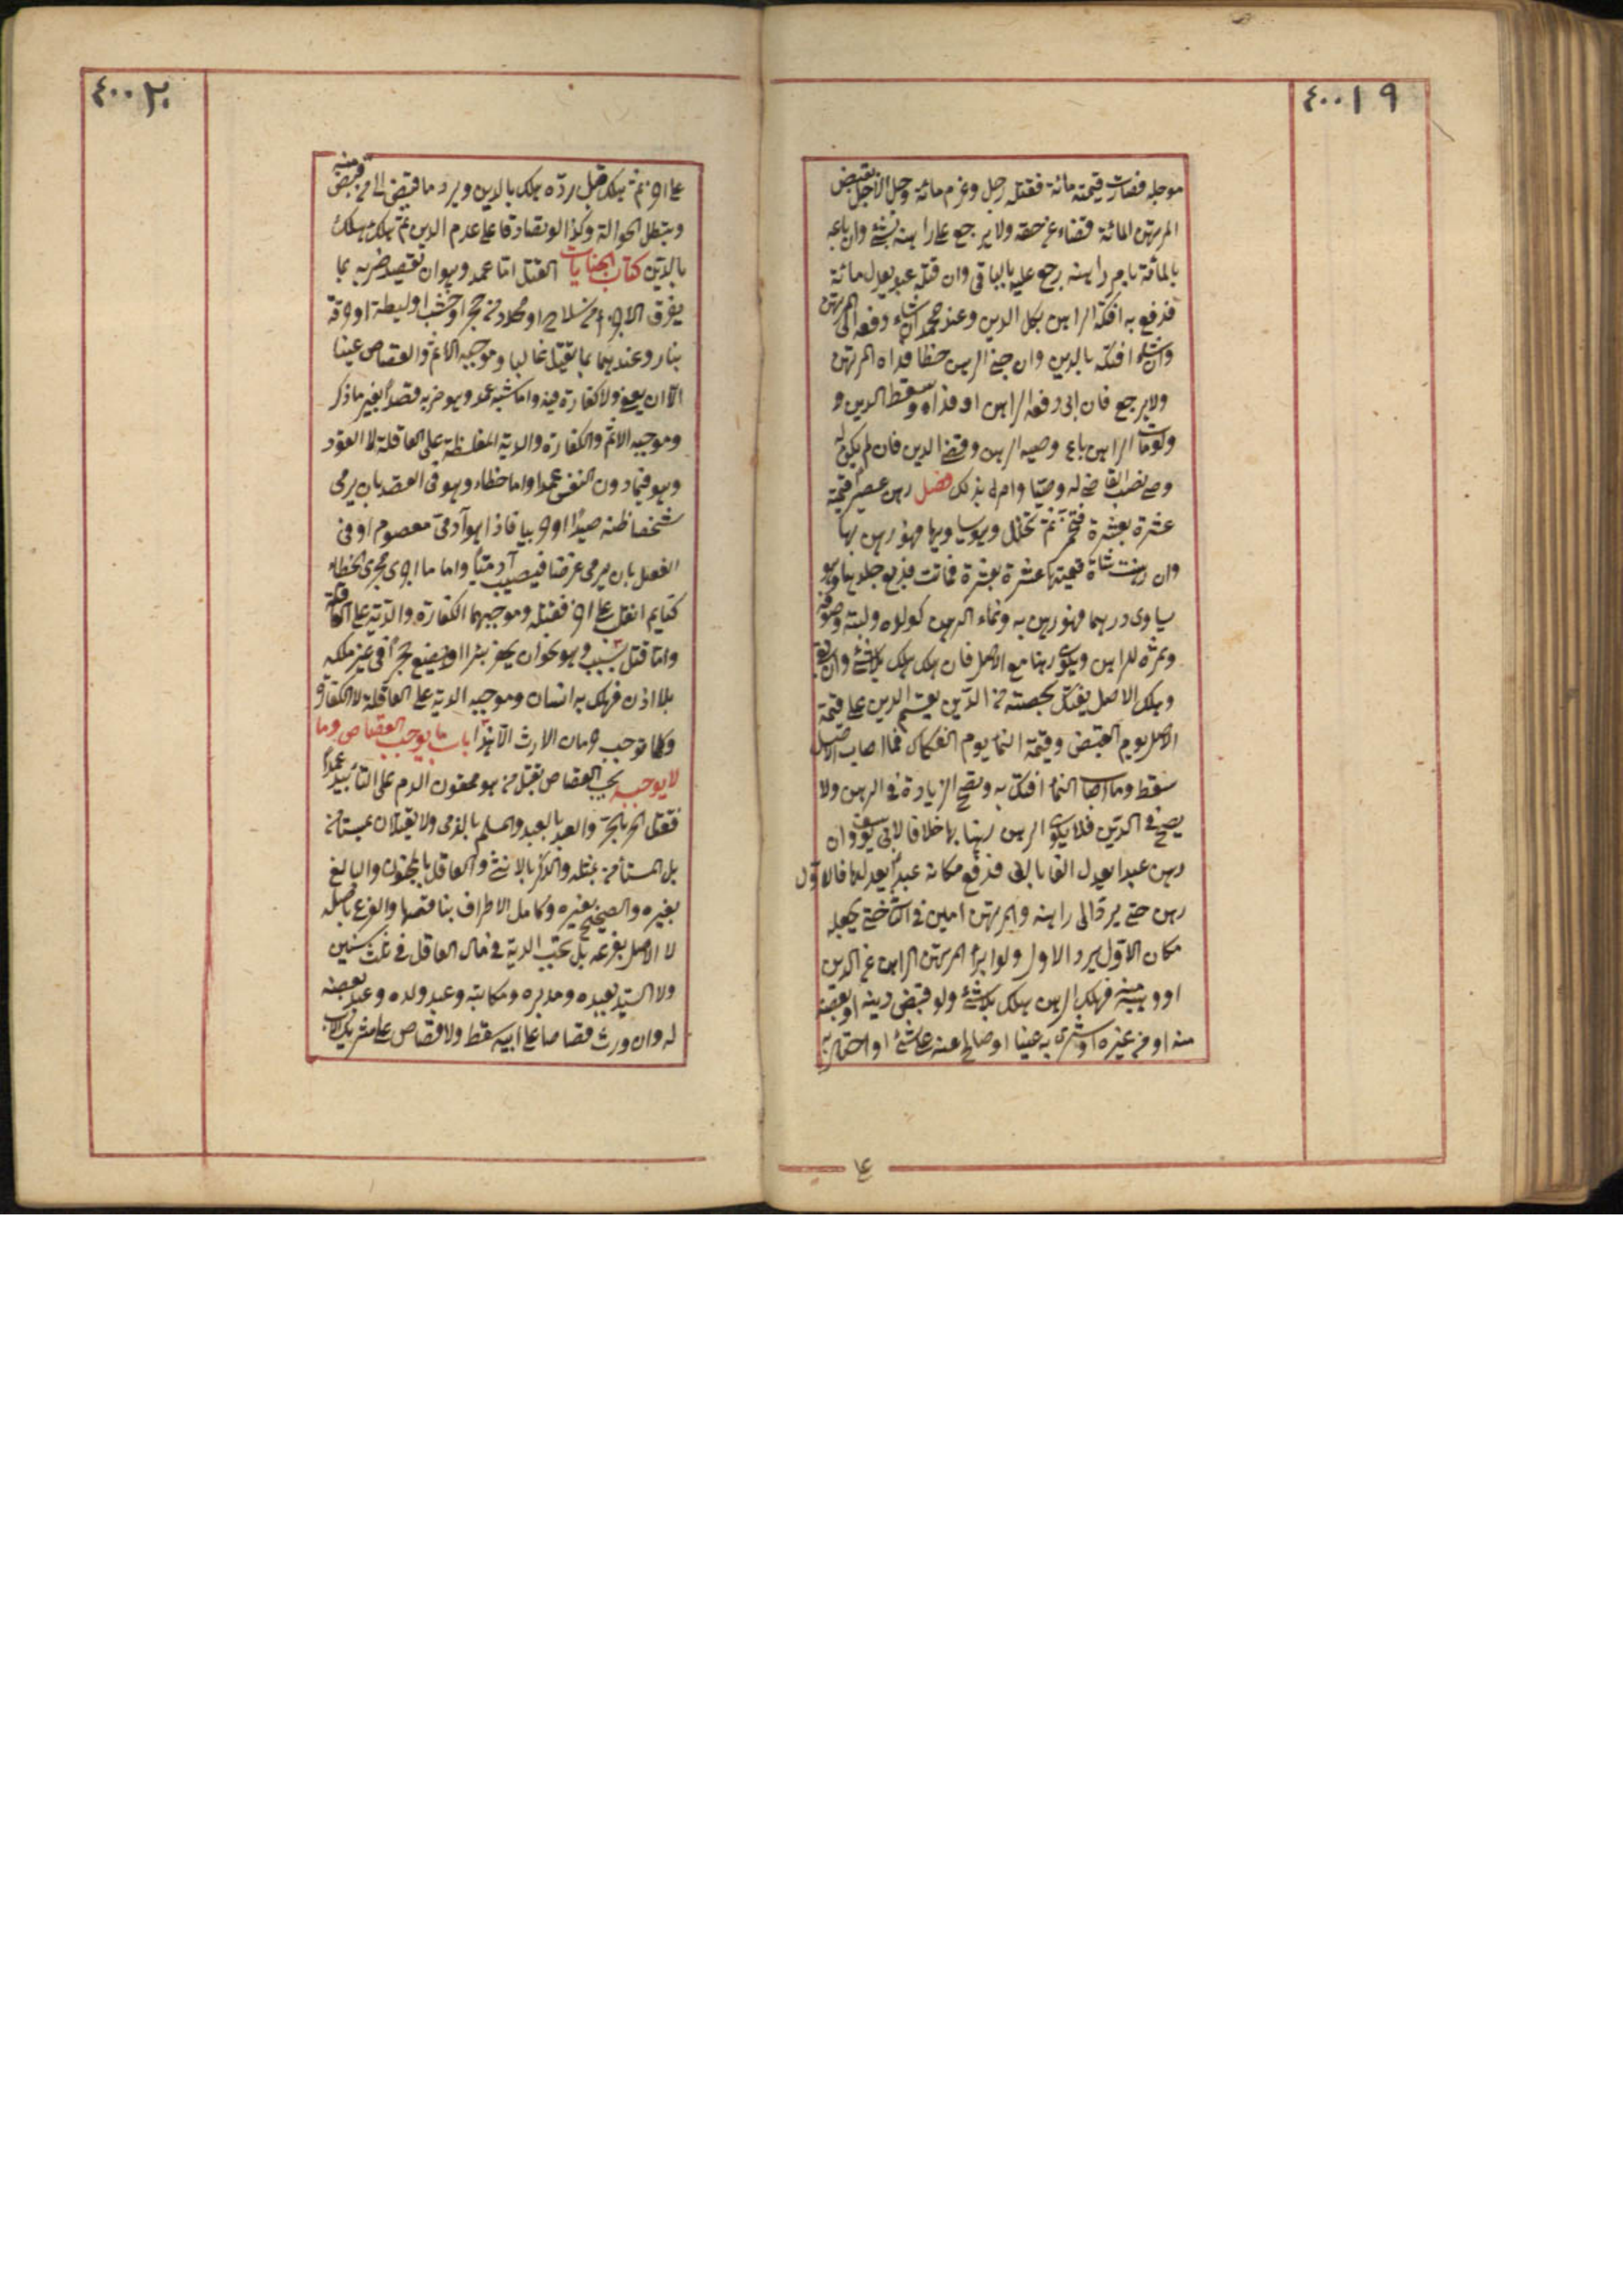 ٤٠٠١٩
موجله فصارت قيمته مائة فقتله رجل وغرم مائة وحل الاجل يقبض
المرتهن المائة قضاء عن حقه ولا يرجع على راهنه بشئ وان باعه
بالمائة بامر راهنه رجع عليه بالباقى وان قتله عبد يعدل مائة
فدفع به افتكه الراهن بكل الدين وعند محمد ان شاء دفعه الى المرتهن
وان شاء افتكه بالدين وان جنى الرهن خطا فداه المرتهن
ولا يرجع فان ابى دفعه الراهن او فداه وسقط الدين و
ولو مات الراهن باع وصيه الرهن وقضى الدين فان لم يكن له
وصى نصب القاضى له وصيا وامره بذلك فصل رهن عصيرا قيمته
عشرة بعشرة فتخمر ثم تخلل وهو يساويها فهو رهن بها
وان رهنت شاة قيمتها عشرة بعشرة فماتت فدبغ جلدها وهو
يساوى درهما فهو رهن به ونماء الرهن كولده ولبنه وصوفه
وثمره للراهن ويكون رهنا مع الاصل فان هلك هلك بلا شئ وان بقى
وهلك الاصل يفتك بحصته من الدين يقسم الدين على قيمة
الاصل يوم القبض وقيمة النما يوم الفكاك فما اصاب الاصل
سقط وما اصاب النما افتك به وتصح الزيادة فى الرهن ولا
يصح فى الدين فلا يكون الرهن رهنا بها خلافا لابى يوسف وان
رهن عبدا يعدل الفا بالف فدفع مكانه عبدا يعدلها فالاول
رهن حتى يرد الى راهنه والمرتهن امين فى الثانى حتى يجعله
مكان الاول برد الاول ولو ابرا المرتهن الراهن عن الدين
او وهبه منه فهلك الرهن هلك بلا شئ ولو قبض دينه او بعضه
منه او من غيره او شرى به عينا او صالح عنه على شئ او احتال به
٤٠٠٢٠
على اخر ثم هلك قبل رده هلك بالدين ويرد ما قبض الى من قبض منه
وتبطل الحوالة وكذا لو تصادقا على عدم الدين ثم هلك هلك
بالدين كتاب الجنايات القتل اما عمد وهو ان يقصد ضربه بما
يفرق الاجزاء من سلاح او محدد من حجر او خشب او ليطة او حرقه
بنار وعندهما بما يقتل غالبا وموجبه الاثم والقصاص عينا
الا ان يعفى ولا كفارة فيه واما شبه عمد وهو ضربه قصدا بغير ما ذكر
وموجبه الاثم والكفارة والدية المغلظة على العاقلة لا القود
وهو فيما دون النفس عمد واما خطاء وهو فى القصد بان يرمى
شخصا ظنه صيدا او حربيا فاذا هو آدمى معصوم او فى
الفعل بان يرمى غرضا فيصيب آدميا واما ما اجرى مجرى الخطاء
كنايم انقلب على اخر فقتله وموجبهما الكفارة والدية على العاقلة
واما قتل بسبب وهو نحو ان يحفر بئرا او يضع حجرا فى غير ملكه
بلا اذن فهلك به انسان وموجبه الدية على العاقلة لا الكفارة
وكلها توجب حرمان الارث الا هذا باب ما يوجب القصاص وما
لا يوجبه يجب القصاص بقتل من هو محقون الدم على التأبيد عمدا
فيقتل الحر بالحر وبالعبد والمسلم بالذمى ولا يقتلان بمستأمن
بل المستأمن بمثله والذكر بالانثى والعاقل بالمجنون والبالغ
بغيره والصحيح بغيره وكامل الاطراف بناقصها والفرع باصله
لا الاصل بفرعه بل تجب الدية فى مال القاتل فى ثلث سنين
ولا السيد بعبده ومدبره ومكاتبه وعبد ولده وعبد بعضه
له وان ورث قصاصا على ابيه سقط ولا قصاص على شريك الاب